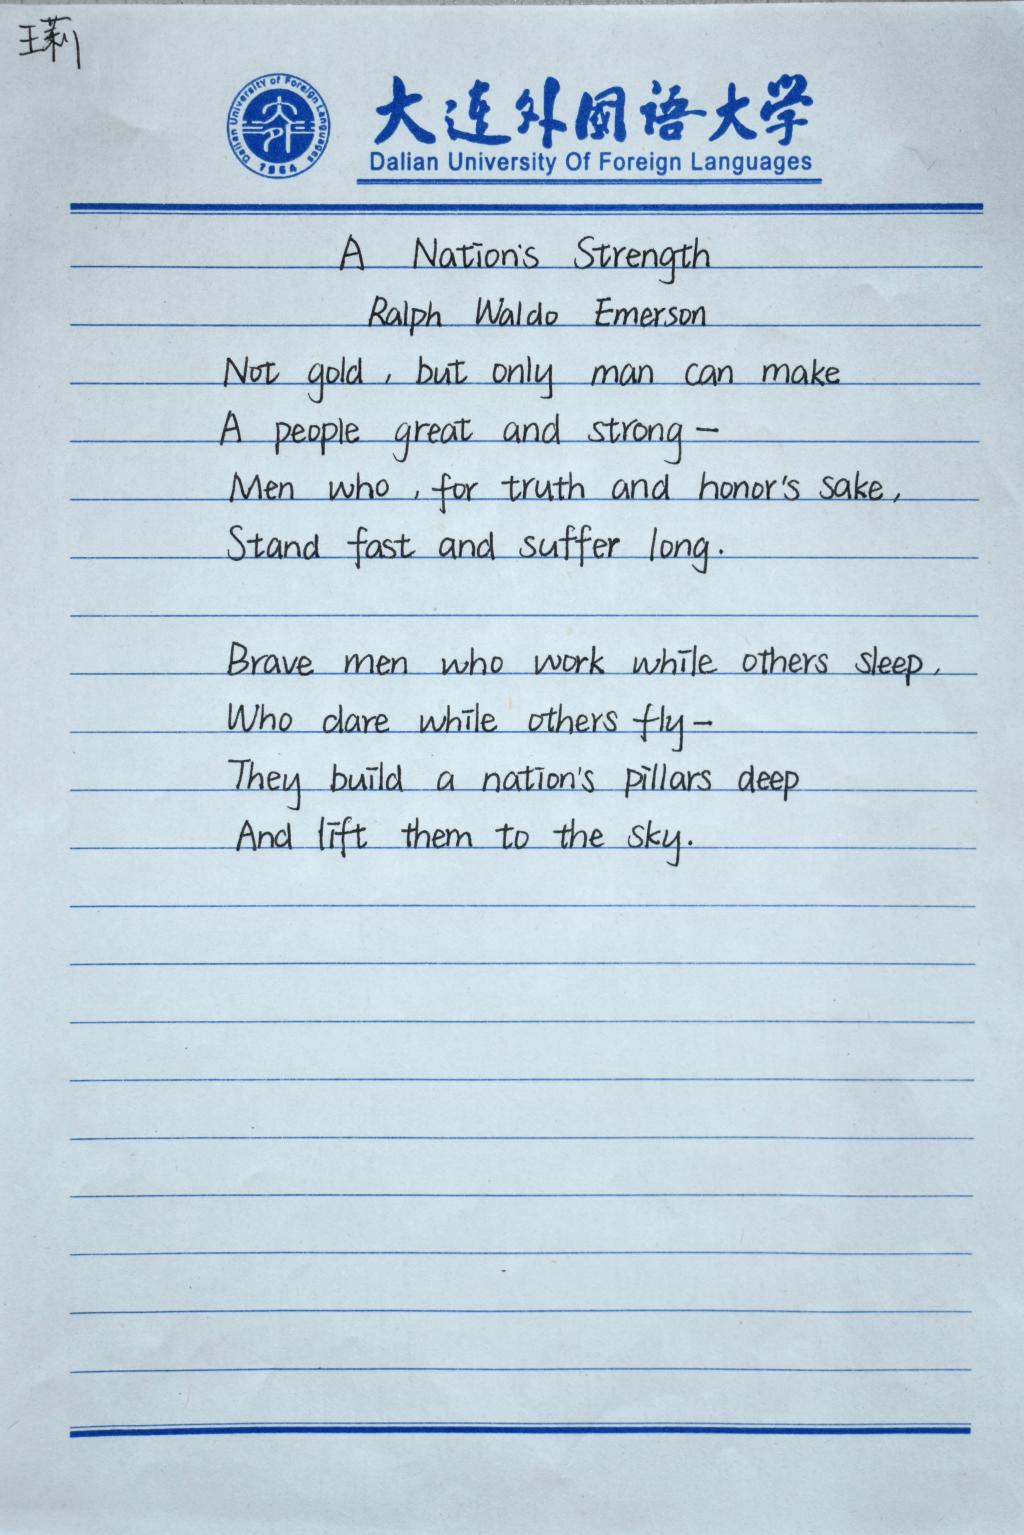 王莉
大连外国语大学
Dalian University of Foreign Languages
大外
1964
Dalian University Of Foreign Languages
A Nation's Strength
Ralph Waldo Emerson
Not gold, but only man can make
A people great and strong—
Men who, for truth and honor's sake,
Stand fast and suffer long.
Brave men who work while others sleep,
Who dare while others fly—
They build a nation's pillars deep
And lift them to the sky.